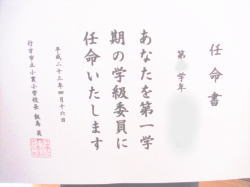 任命書
第 学年
あなたを第一学
期の学級委員に
任命いたします
平成二十三年四月十六日
行方市立小貫小学校長 飯島